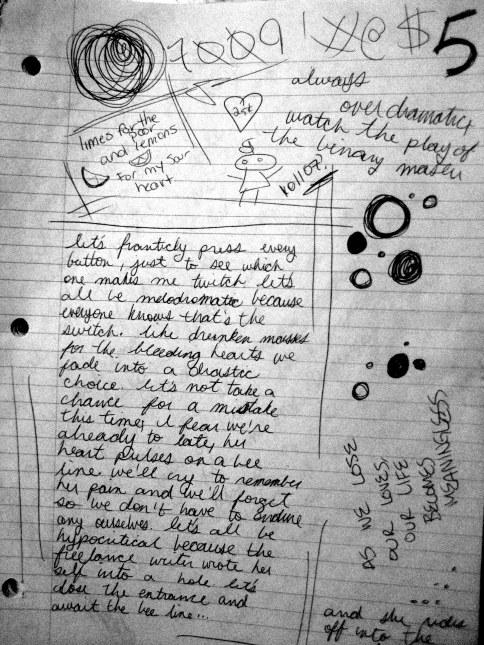 1009 ! @ $ 5
always
overdramatic
watch the play of
the binary
limes for the
poor
and lemons
for my sour
heart
1 
25¢
10/1/07
let's franticly press every
button, just to see which
one makes me twitch let's
all be melodromatic because
everyone knows that's the
switch. like drunken
for the bleeding hearts we
fade into a drastic
choice let's not take a
chance for a mistake
this time, i fear we're
already to late, her
heart pulses on a bee
line we'll cry to remember
her pain and we'll forget
so we don't have to endure
any ourselves. let's all be
hypocritical because the
freelance writer wrote her
self into a hole let's
close the entrance and
await the bee line...
AS WE LOSE
OUR LOVES,
OUR LIFE
BECOMES
MEANINGLESS
...
and she rides
off into the